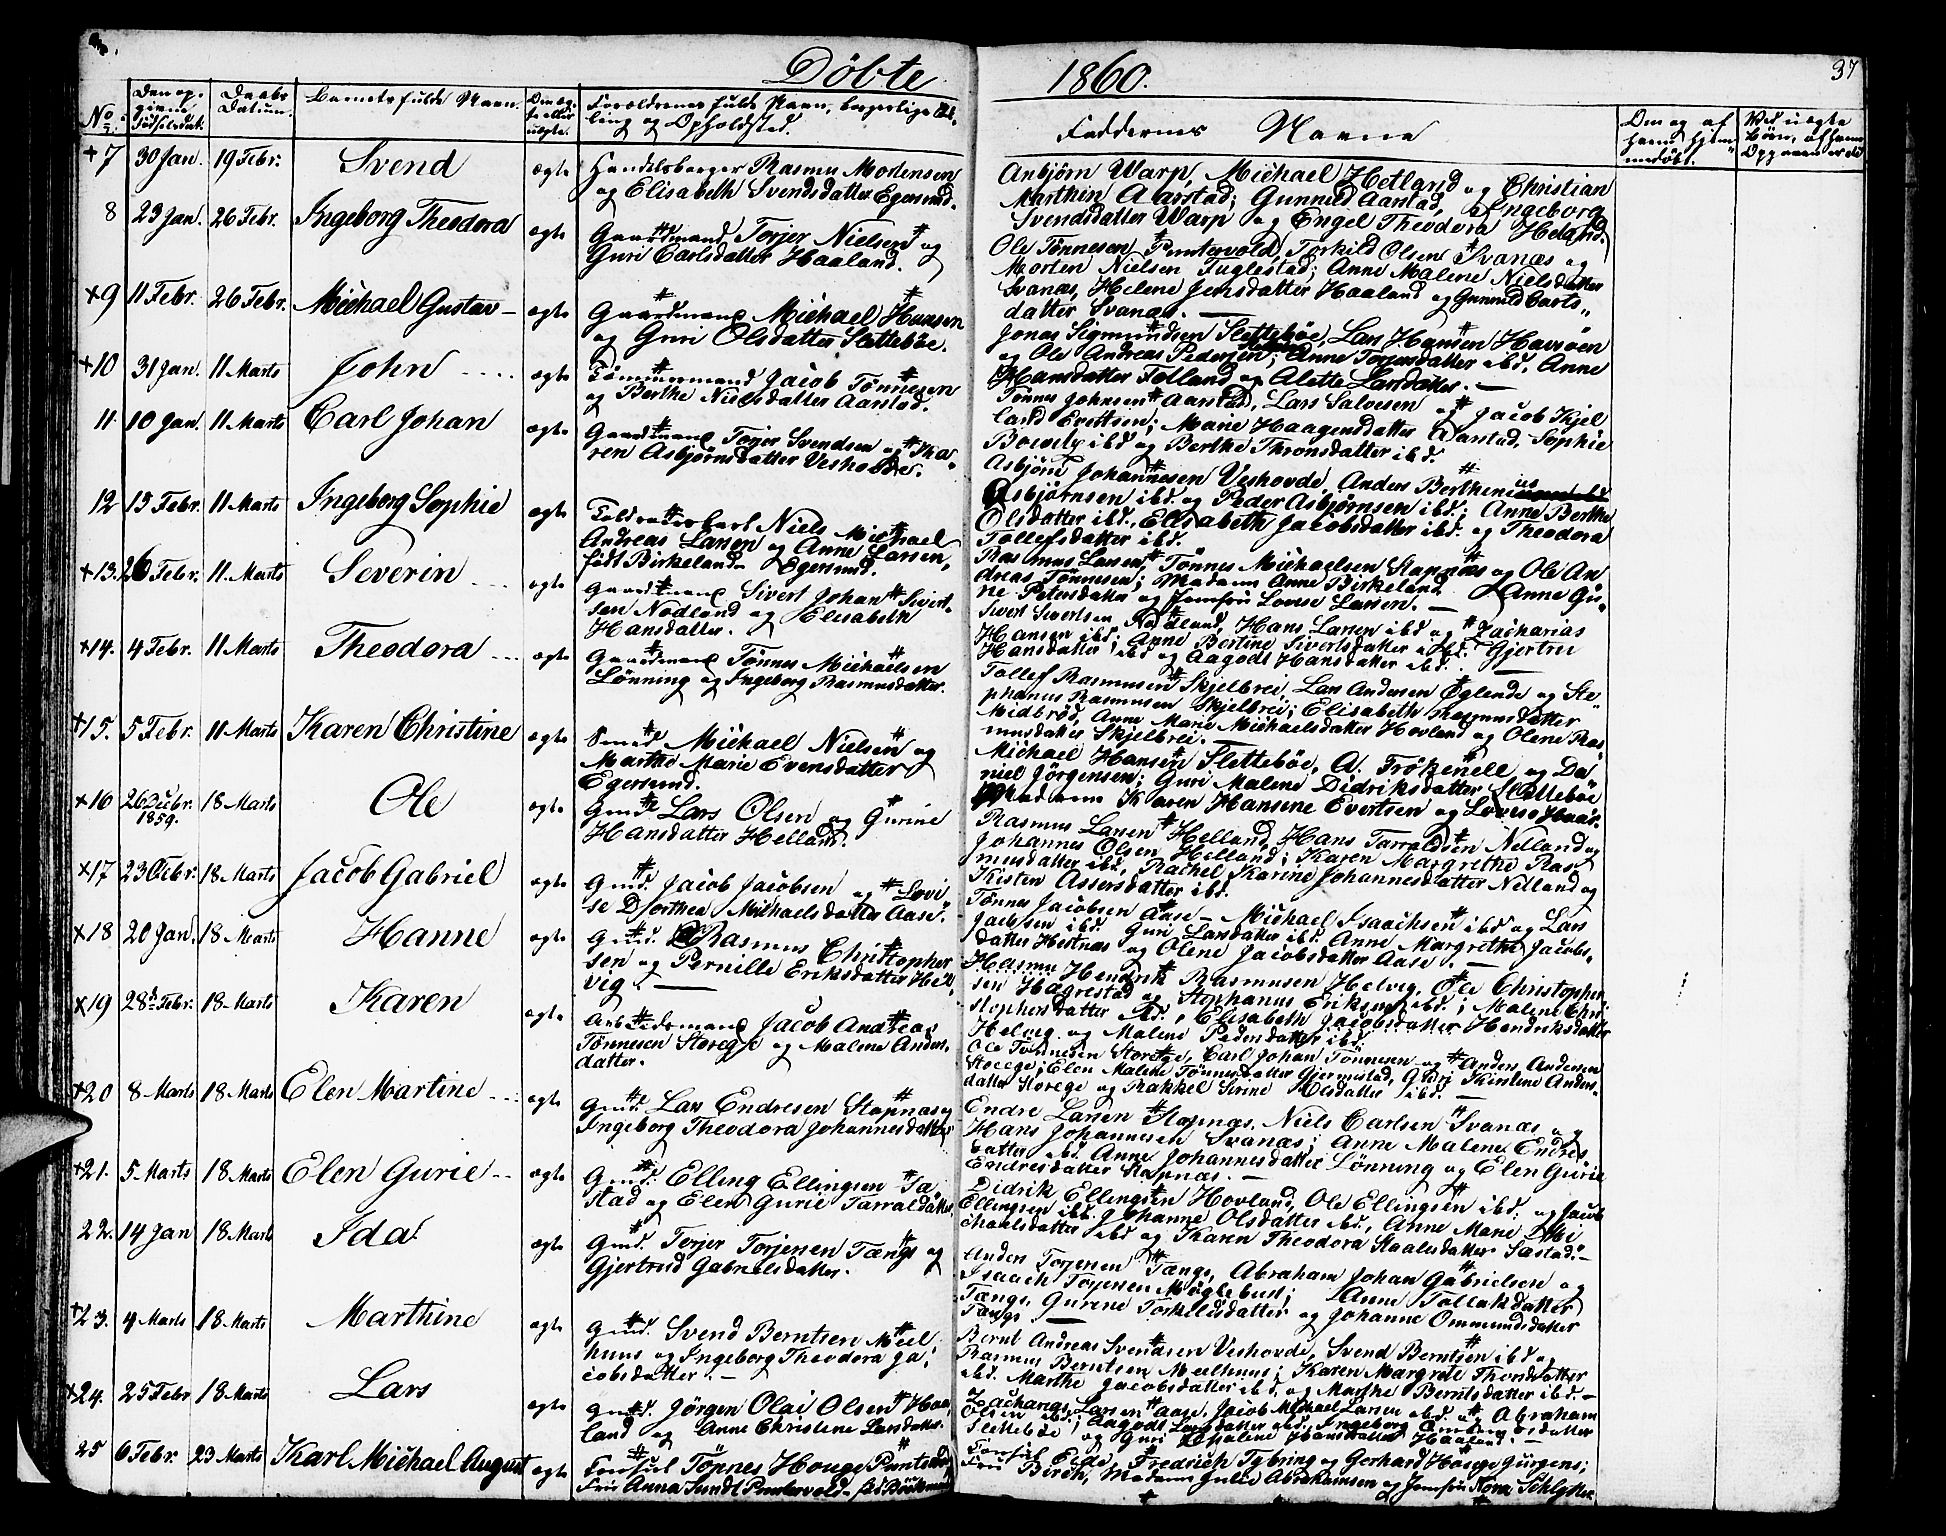 Döbte 1860.
37
No
Den op-
givne
Födselsdat.
Daabs
Datum.
Barnets fulde Navn.
Om æg-
te eller
uægte.
Forældrenes fulde Navn, borgerlige Stil-
ling og Opholdsted.
Faddernes Navne
Om og af
hvem hjem-
medöbt.
Ved uægte
Börn, af hvem
Opgaven er
+7 30 Jan. 19 Febr. Svend ægte
Handelsborger Rasmus Mortensen
og Elisabeth Svendsdatter Egersund.
Anbjörn Warp, Michael Hetland og Christian
Marthin Aarstad; Gunnild Aarstad, Ingeborg
Svendsdatter Warp og Engel Theodora Hetland.
8 23 Jan. 26 Febr. Ingeborg Theodora ægte
Gaardmand Torjer Nielsen og
Guri Carlsdatter Haaland.
Ole Tönnesen Puntervold, Torkild Olsen Svanæs og
Morten Nielsen Fuglestad; Anne Malene Nielsdatter
Svanæs, Helene Jensdatter Haaland og Gunnild Carls-
datter Svanæs.
+9 11 Febr. 26 Febr. Michael Gustav ægte
Gaardmand Michael Hansen
og Guri Olsdatter Sletteböe.
Jonas Sigmundsen Sletteböe, Lars Hansen Havsöen
og Ole Andreas Pedersen; Anne Torjersdatter ibd, Anne
Hansdatter Folland og Alette Larsdatter.
+10 31 Jan. 11 Marts John ægte
Tömmermand Jacob Tönnesen
og Berthe Nielsdatter Aarstad.
Tönnes Johnsen Aarstad, Lars Salvesen og Jacob Kjel
land Evertsen; Marie Haagensdatter Aarstad, Sophie
ibd og Berthe Thronsdatter ibd.
11. 10 Jan. 11 Marts Carl Johan ægte
Gaardmand Torjer Svendsen og Ka-
ren Asbjörnsdatter Veshovde.
Asbjörn Johannesen Veshovde, Anders Berthenius
Asbjörnsen ibd. og Peder Asbjörnsen ibd; Anne Berthe
Olsdatter ibd., Elisabeth Jacobsdatter ibd. og Theodora
Tollefsdatter ibd.
12 15 Febr. 11 Marts Ingeborg Sophie ægte
Niels Michael
Andreas Larsen og Anne Larsen,
födt Birkeland Egersund.
Rasmus Larsen, Tönnes Michaelsen Stapnæs og Ole An
dreas Tönnesen; Madam Anne Birkeland, Anne Gu-
ne Petersdatter og Jomfru Lovise Larsen.
+13. 26 Febr. 11 Marts Severin ægte
Gaardmand Sivert Johan Sivert-
sen Nodland og Elisabeth
Hansdatter.
Sivert Sivertsen Nodland, Hans Larsen ibd og Zacharias
Hansen ibd; Anne Bertine Sivertsdatter ibd. Gjertru
Hansdatter ibd og Aagodt Hansdatter ibd.
+14. 4 Febr. 11 Marts Theodora ægte
Gaardmand Tönnes Michaelsen
Lönning og Ingeborg Rasmusdatter.
Tollef Rasmusen Skjelbrei, Lars Andersen Öglende og Ste-
phanus Rasmusen Skjelbrei; Elisabeth Rasmusdatter
Midbröd, Anne Marie Michaelsdatter Hovland og Olene Ras-
musdatter Skjelbrei.
+15. 5 Febr. 11 Marts Karen Christine ægte
Smed Michael Nielsen og
Marthe Marie Evensdatter
Egersund.
Michael Hansen Sletteböe, A. Frökenell og Da
niel Jörgensen; Guri Malene Didriksdatter Sletteböe
Madame Karen Hansine Evertsen og Lovise
+16 26 Decbr. 1859. 18 Marts Ole ægte
Gmd Lars Olsen og Gurine
Hansdatter Helland.
Rasmus Larsen Helland, Hans Tarraldsen Nelland og
Johannes Olsen Helland; Karen Margrethe Ras
musdatter ibd, Rachel Karine Johannesdatter Nelland og
Kisten Assersdatter ibd.
+17 23 Febr. 18 Marts Jacob Gabriel ægte
Gmd. Jacob Jacobsen og Lovi
se Dorthea Michaelsdatter Aase.
Tönnes Jacobsen Aase, Michael Isaachsen ibd og Lars
Jacobsen ibd. Guri Larsdatter ibd. Anne Margrethe Jacobs-
datter Hestnæs og Olene Jacobsdatter Aase.
+18 20 Jan. 18 Marts Hanne ægte
Gmd. Rasmus Christopher
sen og Pernille Eriksdatter Hel-
vig.
Rasmus Hendrik Rasmusen Helvig, Ole Christopher-
sen Hagrestad og Stephanus Eriksen ibd; Malene Chri
stophersdatter ibd, Elisabeth Jacobsdatter Hendriksdatter
Helvig og Malene Pedersdatter ibd.
+19 28 Febr. 18 Marts Karen ægte
Arbeidsmand Jacob Andreas
Tönnesen Storege og Malene Anders-
datter.
Ole Tönnesen Storege, Carl Johan Tönnesen og Anders Andersen
Storege; Elen Malene Tönnesdatter Gjermestad, Kirstine Anders-
datter Storege og Rakkel Serine Olsdatter ibd.
+20 8 Marts 18 Marts Elen Martine ægte
Gmd. Lars Endresen Stapnæs og
Ingeborg Theodora Johannesdatter
Endre Larsen Stapnæs, Niels Carlsen Svanæs og
Hans Johannesen Svanæs; Anne Malene Endres
datter ibd. Anne Johannesdatter Lönning og Elen Gurie
Endresdatter Stapnæs.
+21. 5 Marts 18 Marts Elen Gurie ægte
Gmd. Elling Ellingsen Sæ
stad og Elen Gurie Tarraldsdatter
Didrik Ellingsen Hovland, Ole Ellingsen ibd. og Jacob
Ellingsen ibd. Johanne Olsdatter ibd, Anne Marie Mi
chaelsdatter ibd og Karen Theodora Staalesdatter Sæstad.
22. 14 Jan 18 Marts Ida ægte
Gmd. Torjer Torjersen Tængs og
Gjertrud Gabrielsdatter.
Anders Torjersen Tængs, Abraham Johan Gabrielsen og
Isaach Torjersen Möglebust; Anne Tollaksdatter
Tængs, Gurine Torkildsdatter og Johanne Ommundsdatter
Tængs
+23. 4 Marts 18 Marts Marthine ægte
Gmd. Svend Berntsen Meel
huus og Ingeborg Theodora Ja-
cobsdatter.
Bernt Andreas Svendsen Veshovde, Svend Berntsen ibd og
Rasmus Berntsen Meelhuus; Karen Margrete Thorsdatter
ibd. Marthe Jacobsdatter ibd, og Marthe Berntsdatter ibd.
+24. 25 Febr 18 Marts Lars ægte
Gmd. Jörgen Olai Olsen Haa
land og Anne Christene Larsdatter.
Zacharias Larsen Aase, Jacob Michael Larsen ibd. og Abraham
Olsen ibd; Aagodt Larsdatter ibd, Ingeborg
Sletteböe og Guri Malene Hansdatter Haaland.
25 6 Febr. 23 Marts Karl Michael August ægte
Tönnes Houge Puntervold
Fru Anna Sundt Puntervold
Eide, Fredrich Tybring og Gerhard Houge Jürgens;
Fru Birch, Madam Julie Abrahamsen og Jomfru Nora